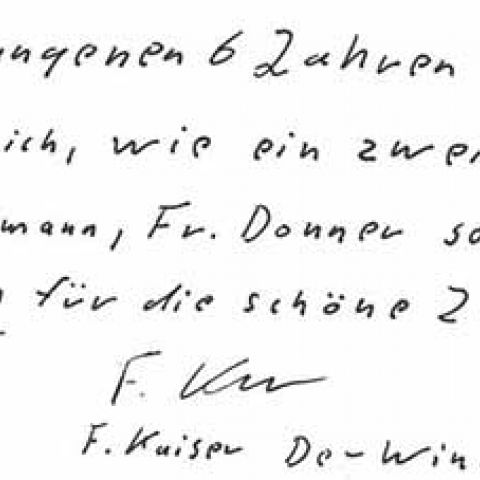 ngenen 6 Jahren
ich, wie ein zwei
mann, Fr. Donner so
für die schöne Z
F. K
F. Kaiser De-Win